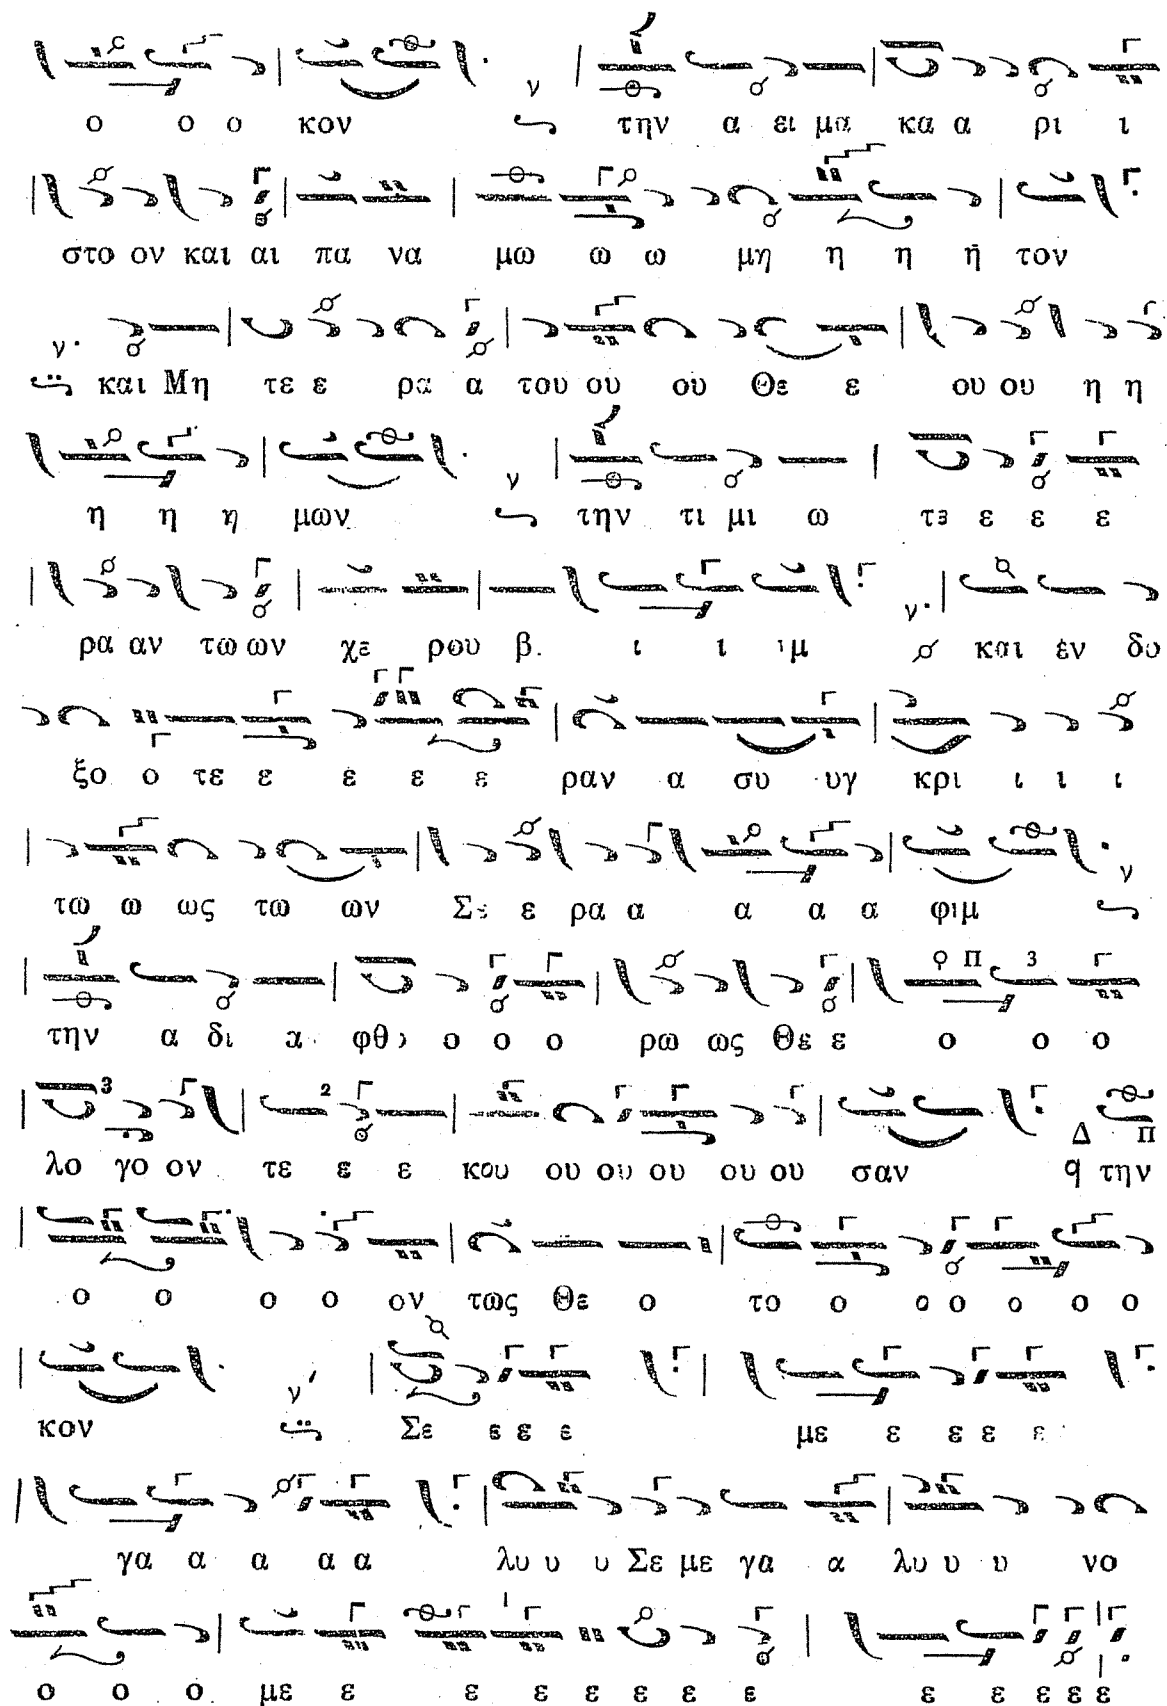 ο ο ο κον την α ει μα κα α ρι ι
στο ον και αι πα να μω ω ω μη η η η τον
και Μη τε ε ρα α του ου ου Θε ε ου ου η η
η η η μων την τι μι ω τε ε ε ε
ρα αν τω ων χε ρου β. ι ι ιμ και έν δο
ξο ο τε ε ε ε ε ραν α συ υγ κρι ι ι ι
τω ω ως τω ων Σε ε ρα α α α α φιμ
την α δι α φθο ο ο ο ρω ως Θε ε ο ο ο
λο γο ον τε ε ε κου ου ου ου ου ου σαν την
ο ο ο ο ον τως Θε ο το ο ο ο ο ο ο
κον Σε ε ε ε με ε ε ε ε
γα α α α α λυ υ υ Σε με γα α λυ υ υ νο
ο ο ο με ε ε ε ε ε ε ε ε ε ε ε